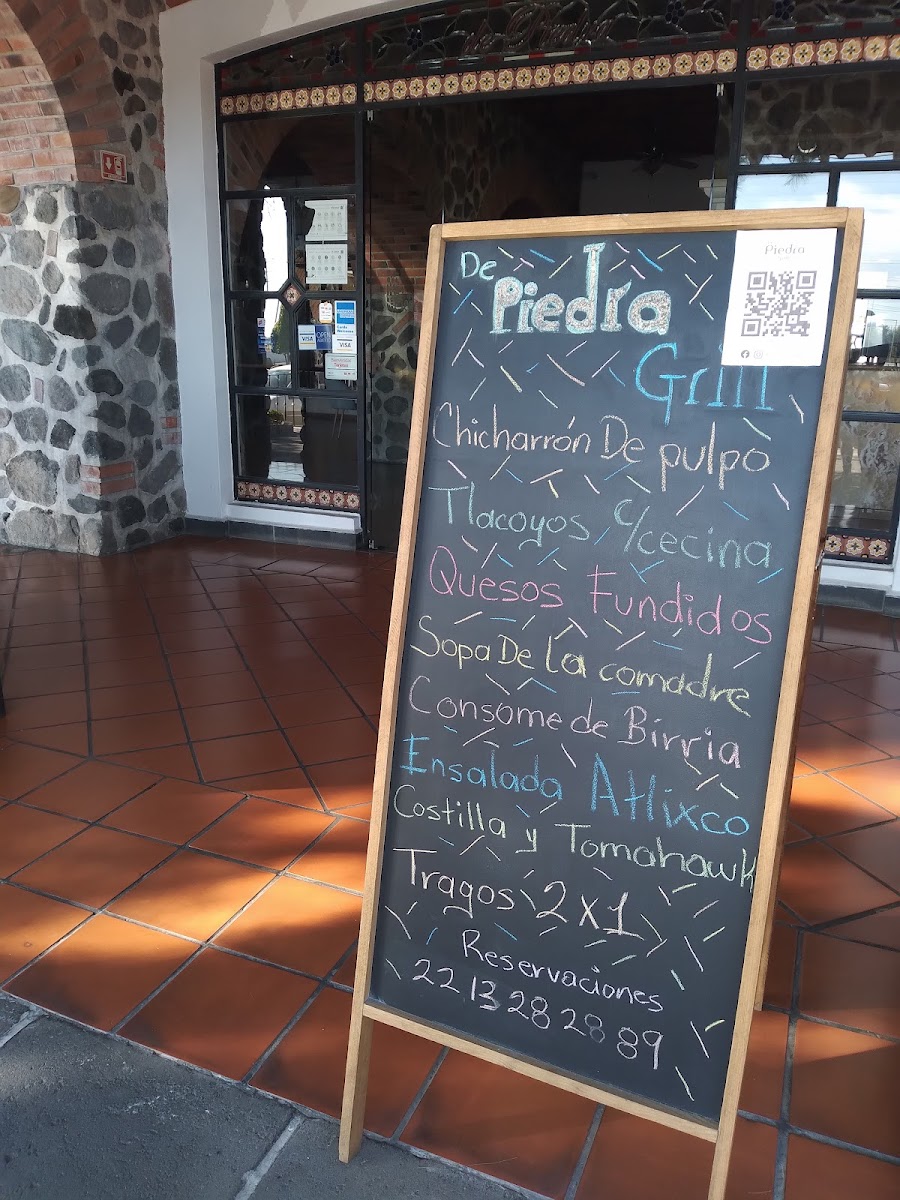 De Piedra
Grill
Chicharrón De pulpo
Tlacoyos c/cecina
Quesos Fundidos
Sopa De la comadre
Consome de Birria
Ensalada Atlixco
Costilla y Tomahawk
Tragos 2x1
Reservaciones
22 13 28 28 89
Piedra
VISA
VISA